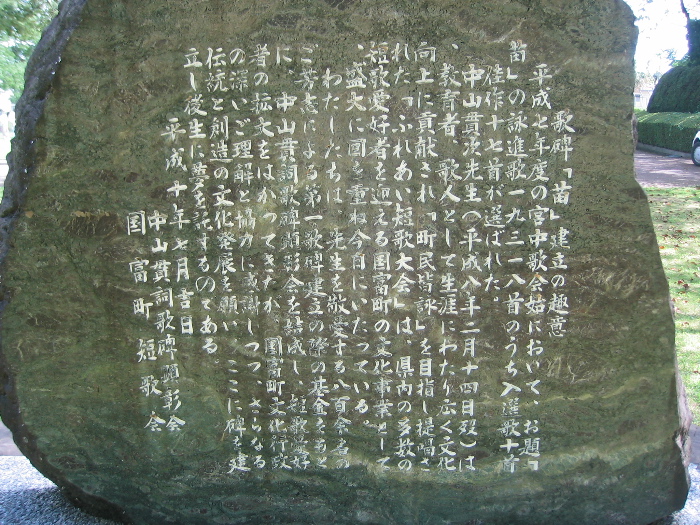 歌碑「苗」建立の趣意
平成七年度の宮中歌会始において、お題「
苗」の詠進歌一九三一八首のうち入選歌十首
佳作十七首が選ばれた。
中山貫次先生(平成八年二月十四日歿)は
、教育者、歌人として生涯にわたり広く文化
向上に貢献され「町民皆詠」を目指し提唱さ
れた「ふれあい短歌大会」は、県内の多数の
短歌愛好者を迎える国富町の文化事業として
、盛大に回を重ね今日にいたっている。
わたしたちは、先生を敬愛する八百余名の
ご芳志による第一歌碑建立の際の基金をもと
に、中山貫詞歌碑顕彰会を結成し、短歌愛好
者の拡大をはかってきたが、国富町文化行政
の深いご理解と協力に感謝しつつ、さらなる
伝統と創造の文化発展を願い、ここに碑を建
立し後生に夢を託するのである。
平成十年七月吉日
中山貫詞歌碑顕彰会
国富町短歌会